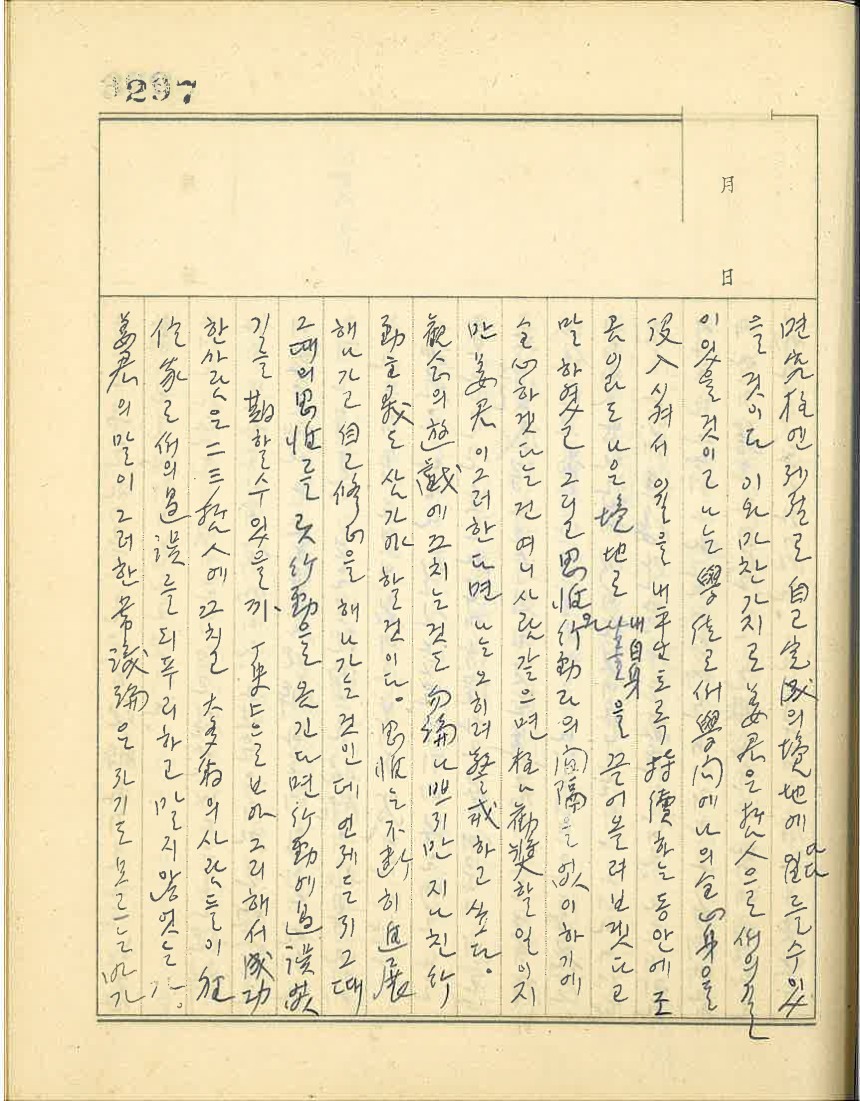 297
月
日
면 究極엔 제절로 自己完成의 境地에 다다를 수 있
을 것이다 이와 마찬가지로 姜君은 哲人으로써의 길
이 있을 것이고 나는 學徒로써 學问에 나의 全心身을
没入시켜서 일을 내 하도록 持續하는 동안에 조
곰이라도 나은 境地로 내 自身을 끌어올려 보겟다고
말하였고 그리고 思惟와 行動과의 间隔을 없이하기에
全心하겠다는 건 여니 사람 같으면 极히 勸獎할 일이지
만 姜君이 그러한다면 나는 오히려 警戒하고 싶다。
觀念의 遊戱에 끄치는 것도 勿論 나쁘지만 지나친 行
動主義도 삼가야 할 것이다。思惟는 不斷히 進展
해 나가고 自己修正을 해 나가는 것인데 언제든지 그때
그때의 思惟를 곳 行動을 옮긴다면 行動에 過誤 없
기를 期할 수 있을까、歷史上으로 보아 그리해서 成功
한 사람은 二三 哲人에 끄치고 大多数의 사람들이 狂
信家로써의 過誤를 되푸리하고 말지 않엇는가。
姜君의 말이 그러한 常識論은 자기도 모르는 바가